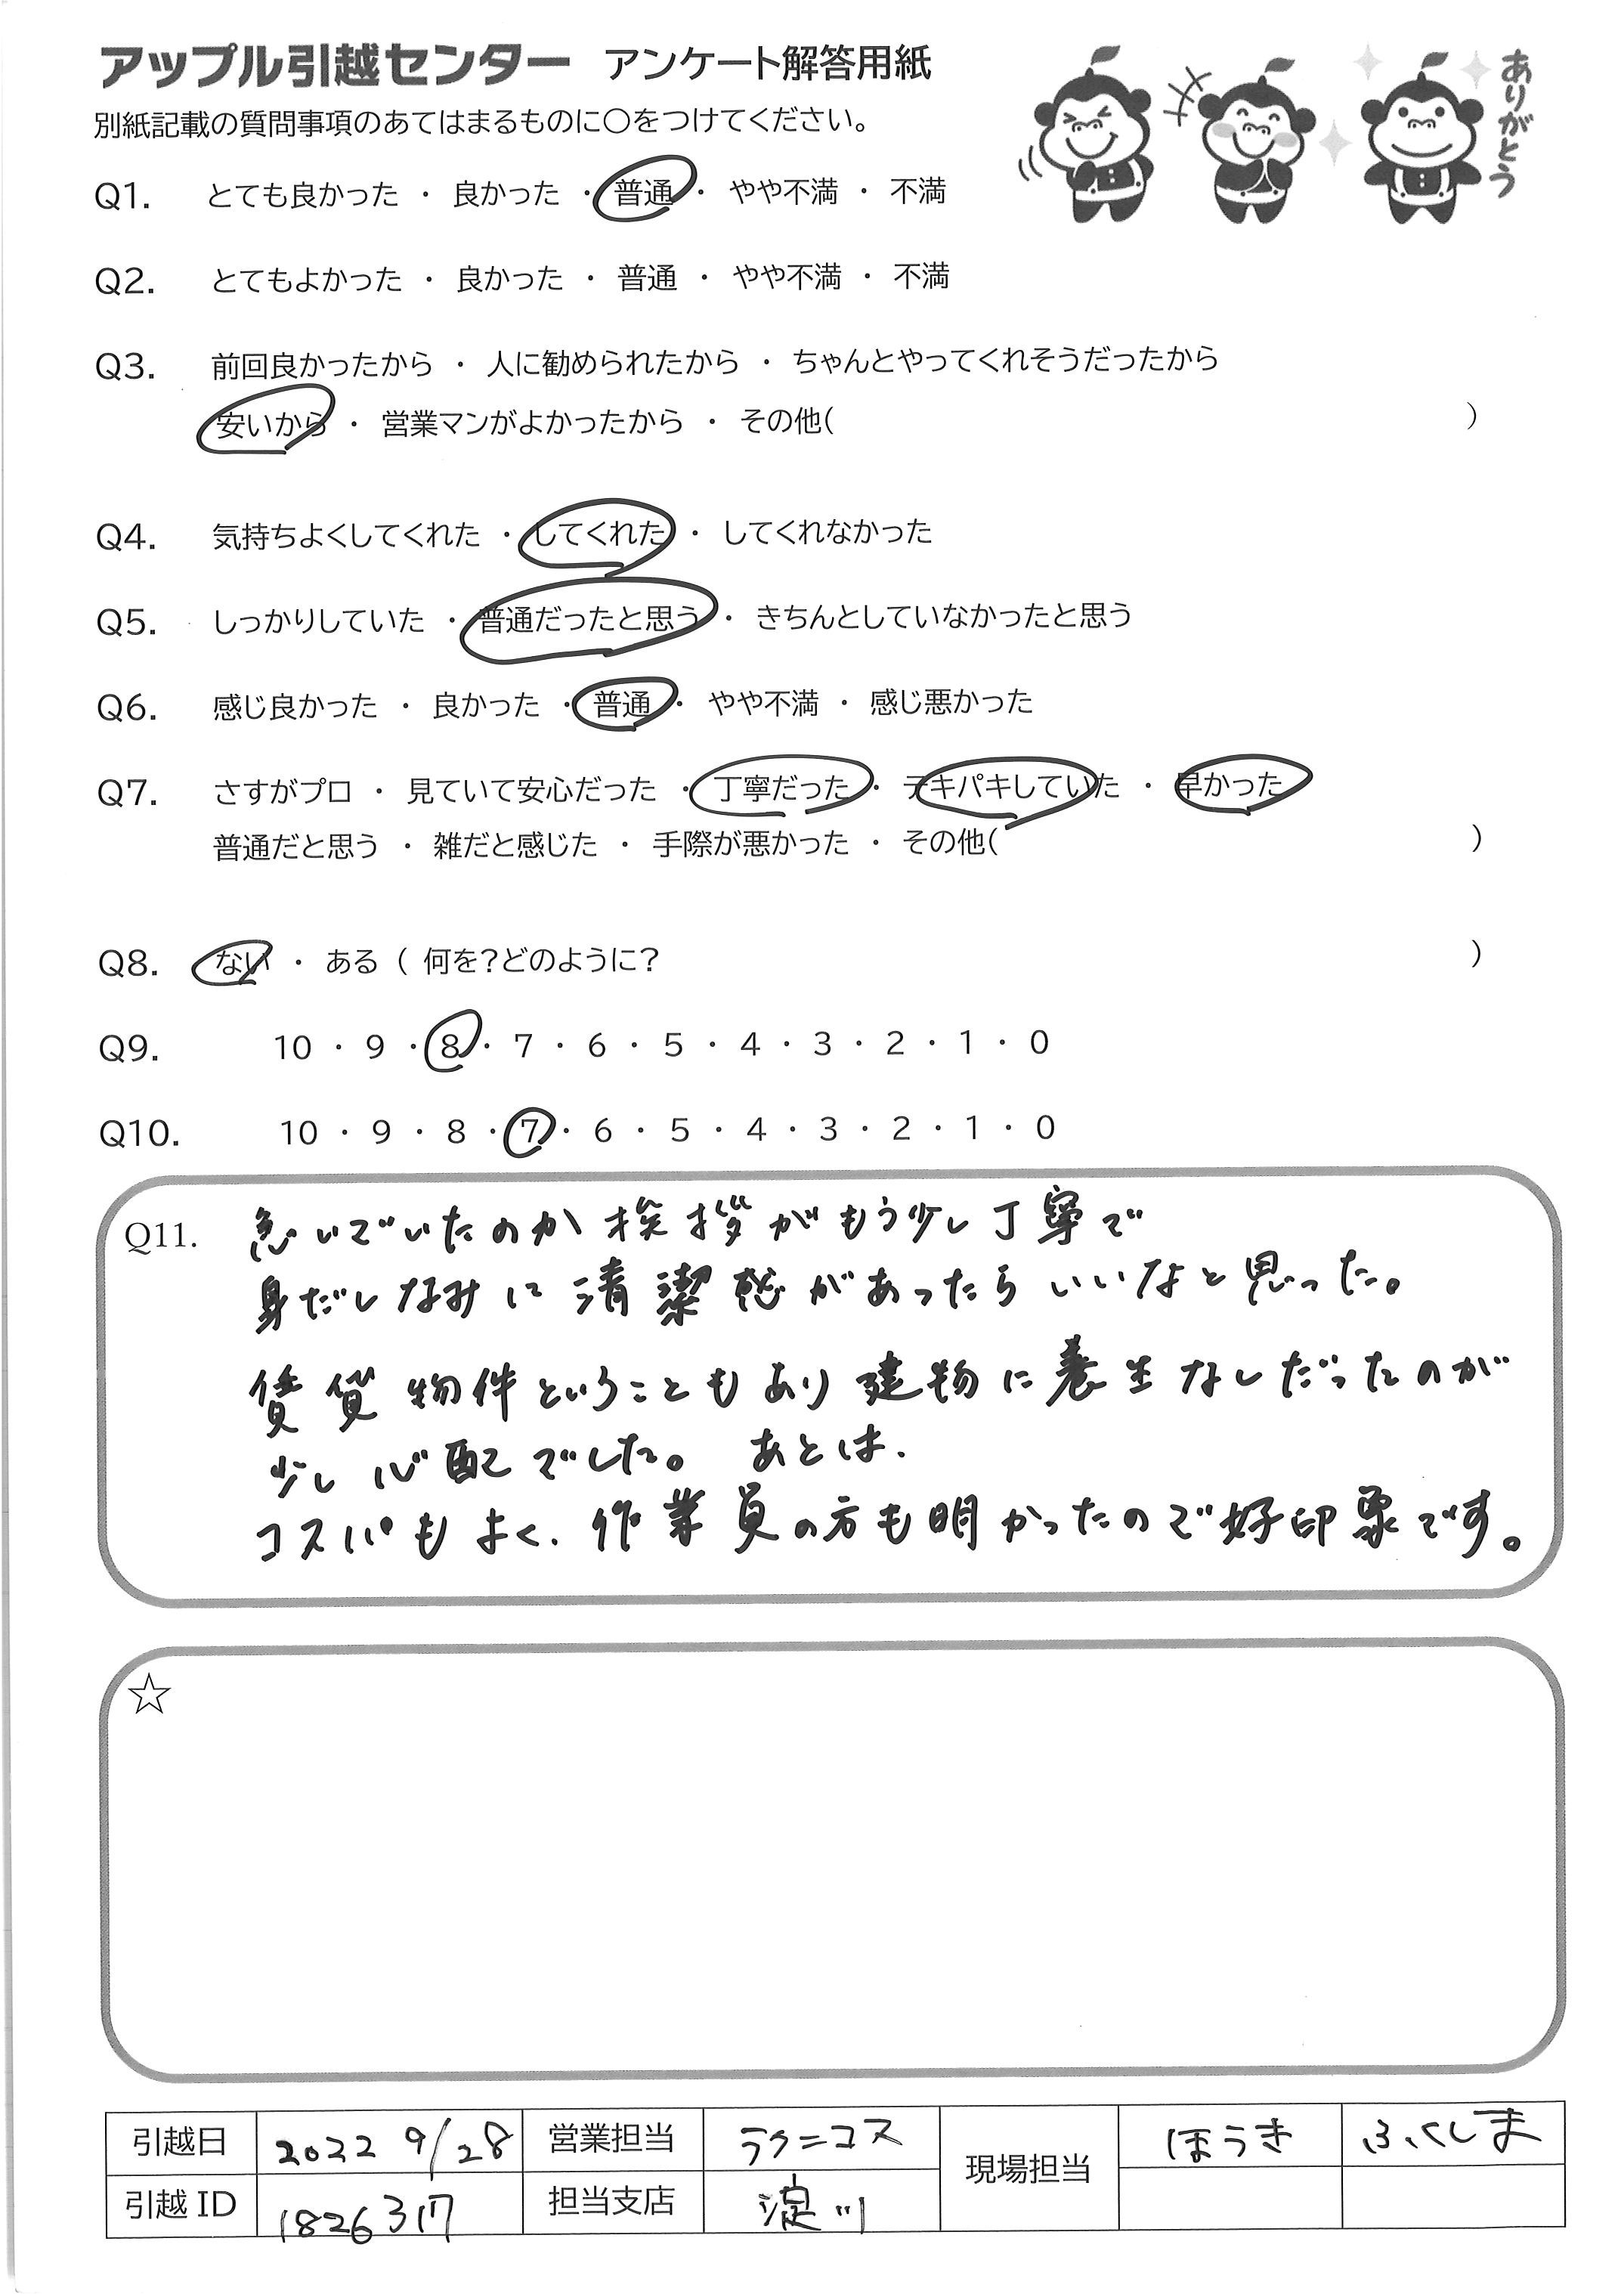 アップル引越センター アンケート解答用紙
ありがとう
別紙記載の質問事項のあてはまるものに〇をつけてください。
Q1. とても良かった ・ 良かった ・ 普通 ・ やや不満 ・ 不満
Q2. とてもよかった ・ 良かった ・ 普通 ・ やや不満 ・ 不満
Q3. 前回良かったから ・ 人に勧められたから ・ ちゃんとやってくれそうだったから
安いから ・ 営業マンがよかったから ・ その他( )
Q4. 気持ちよくしてくれた ・ してくれた ・ してくれなかった
Q5. しっかりしていた ・ 普通だったと思う ・ きちんとしていなかったと思う
Q6. 感じ良かった ・ 良かった ・ 普通 ・ やや不満 ・ 感じ悪かった
Q7. さすがプロ ・ 見ていて安心だった ・ 丁寧だった ・ テキパキしていた ・ 早かった
普通だと思う ・ 雑だと感じた ・ 手際が悪かった ・ その他( )
Q8. ない ・ ある ( 何を?どのように? )
Q9. 10 ・ 9 ・ 8 ・ 7 ・ 6 ・ 5 ・ 4 ・ 3 ・ 2 ・ 1 ・ 0
Q10. 10 ・ 9 ・ 8 ・ 7 ・ 6 ・ 5 ・ 4 ・ 3 ・ 2 ・ 1 ・ 0
Q11. 急いでいたのか挨拶がもう少し丁寧で
身だしなみに清潔感があったらいいなと思った。
賃貸物件ということもあり建物に養生なしだったのが
少し心配でした。 あとは、
コスパもよく、作業員の方も明かったので好印象です。
☆
引越日 2022 9/28 営業担当 ラクニコス 現場担当 ほうき ふくしま
引越 ID 1826317 担当支店 淀川